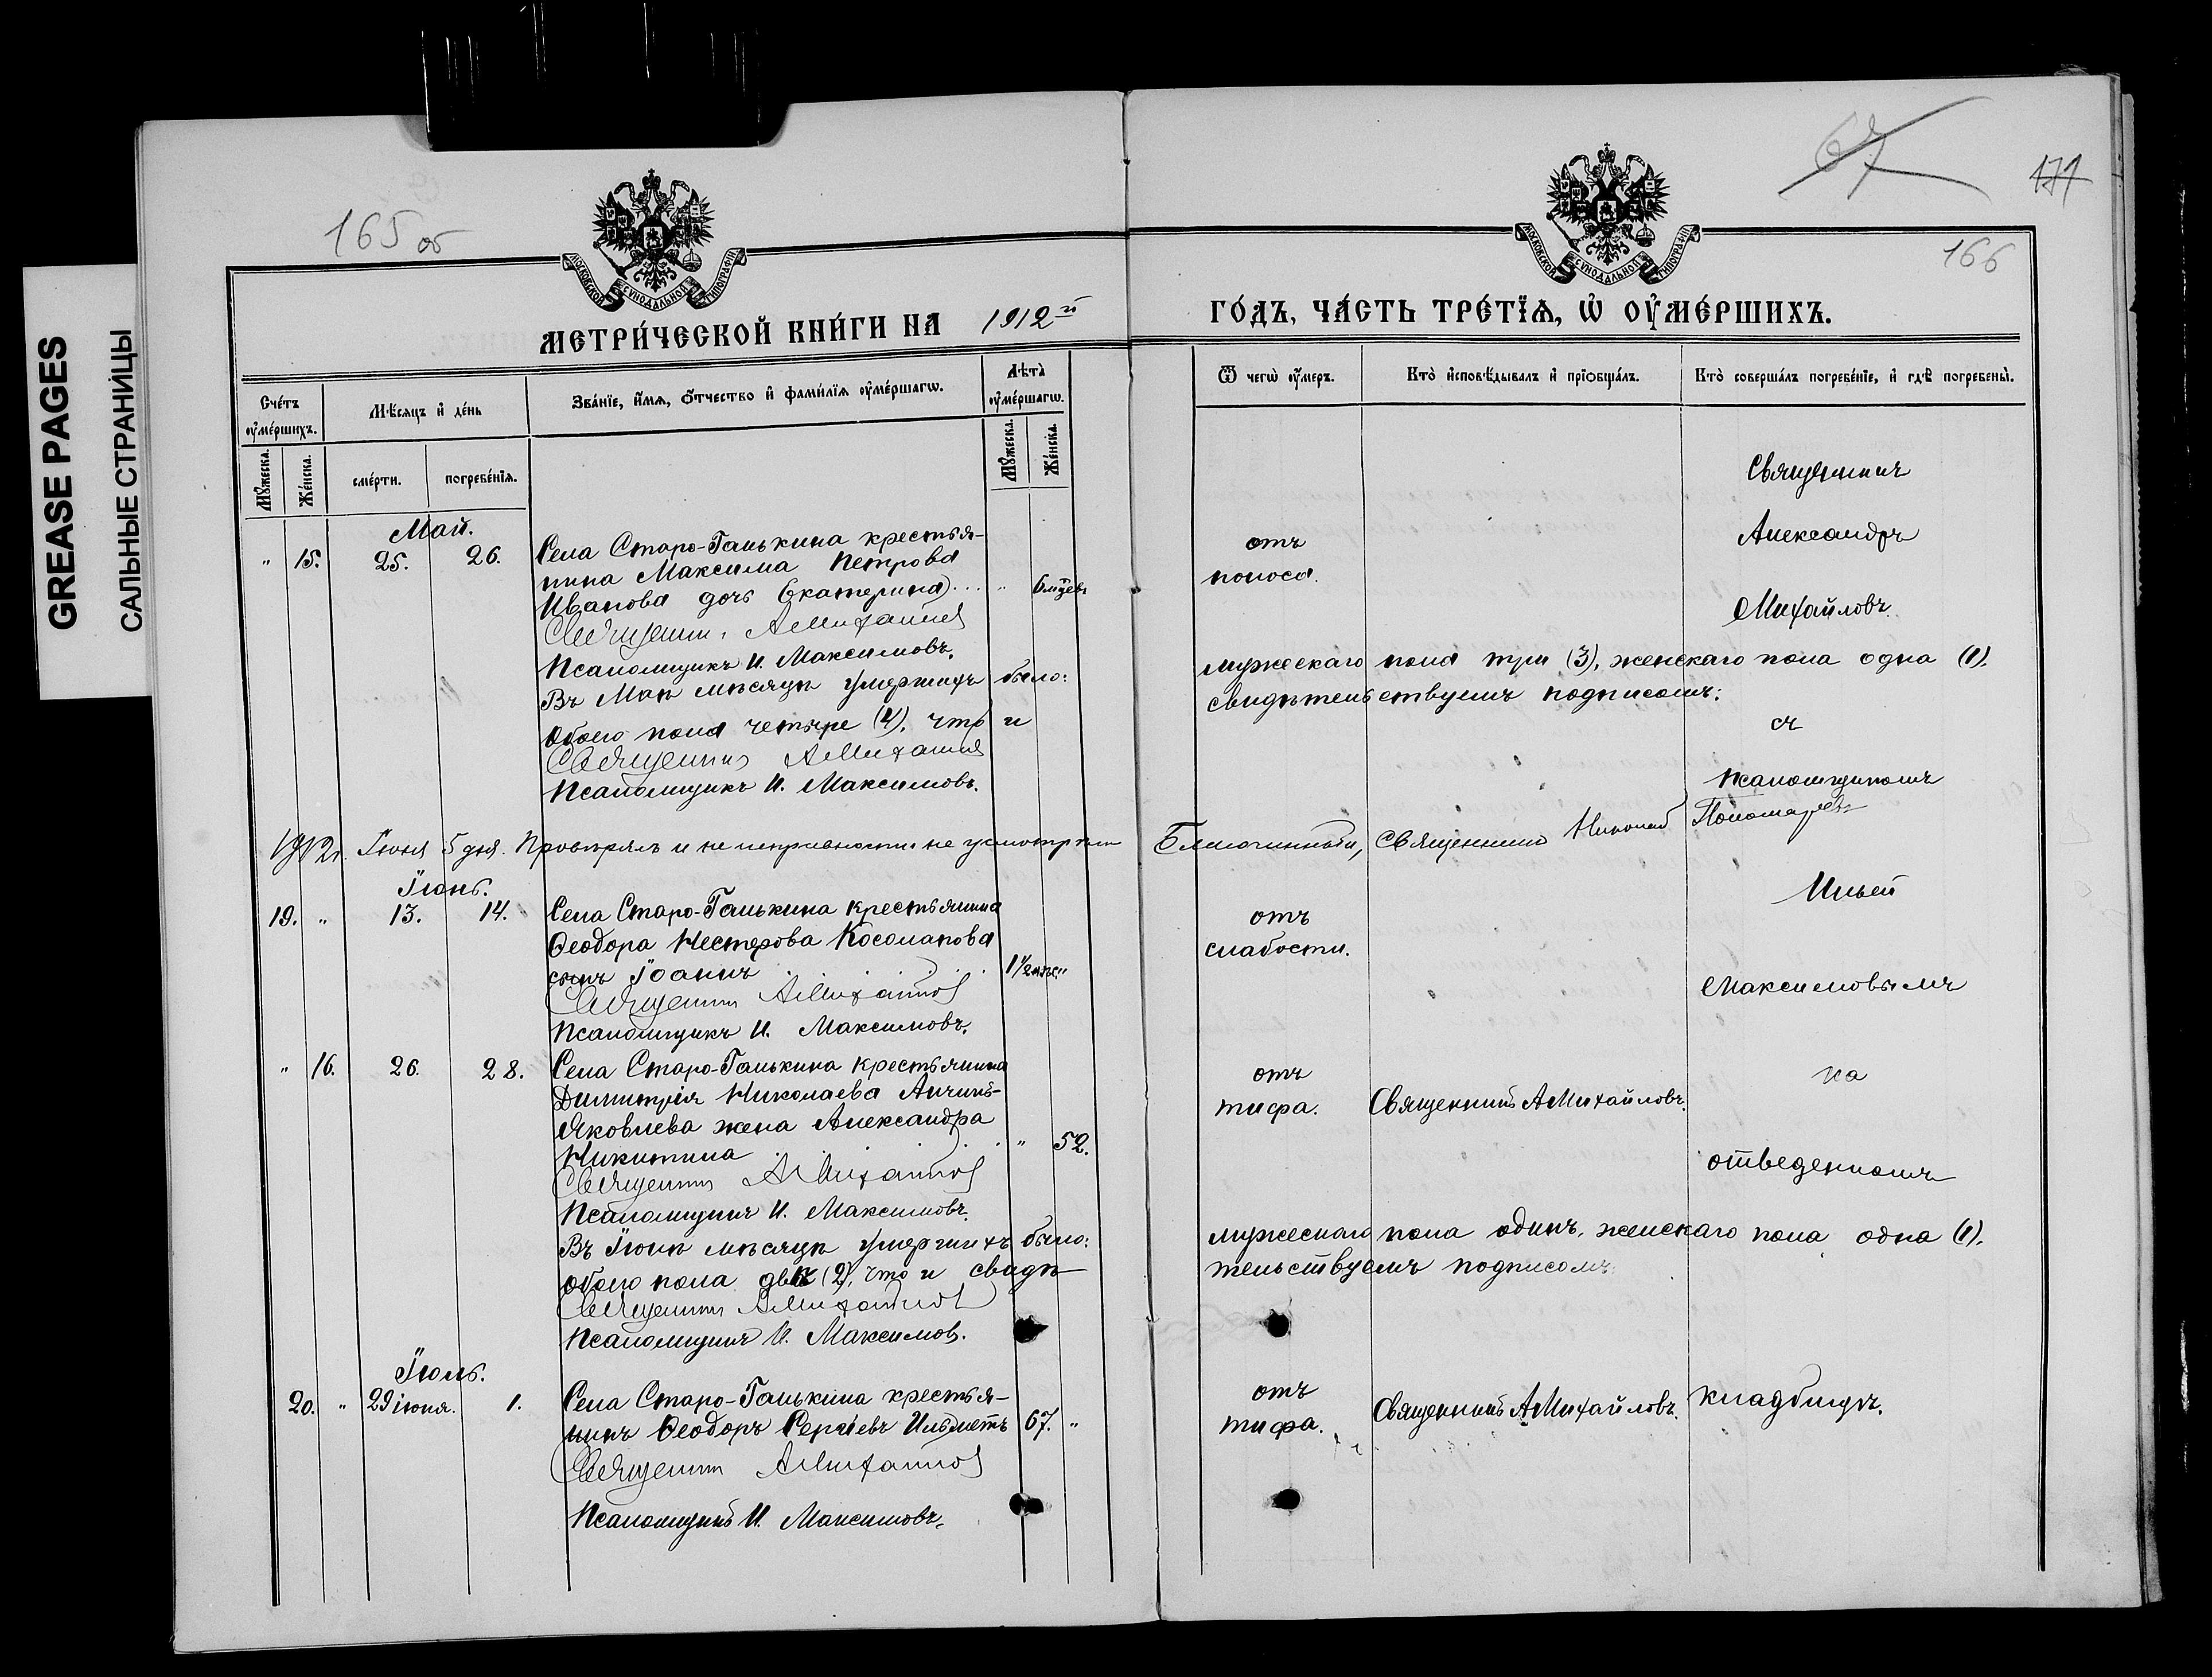 GREASE PAGES
САЛЬНЫЕ СТРАНИЦЫ
165 об
МОСКОВСКОЙ СѴНОДАЛЬНОЙ ТИПОГРАФІИ
МЕТРИ́ЧЕСКОЙ КНИ́ГИ НА 1912й
Сче́тъ ᲂу҆ме́ршихъ.
Мѣ́сяцъ и҆ де́нь
Зва́нїе, и҆́мѧ, ѻ҆́тчество и҆ фами́лїѧ ᲂу҆ме́ршагѡ.
Лѣта̀ ᲂу҆ме́ршагѡ.
Мꙋ́жеска.
Же́нска.
сме́рти.
погребе́нїѧ.
Мꙋ́жеска.
Же́нска.
Май.
" 15. 25. 26. Села Старо-Ганькина крестья-
нина Максима Петрова
Иванова дочь Екатерина... " 6 мцевъ
Священникъ АМихайловъ
Псаломщикъ И. Максимовъ.
Въ Маѣ мѣсяцѣ умершихъ было:
Обоего пола четыре (4), что и
Священникъ АМихайловъ
Псаломщикъ И. Максимовъ.
1912 г. Іюня 5 дня. Провѣрялъ и не исправности не усмотрѣлъ
Іюнь.
19. " 13. 14. Села Старо-Ганькина крестьянина
Ѳеодора Нестерова Косолапова
сынъ Іоаннъ 1½ "
Священникъ АМихайловъ
Псаломщикъ И. Максимовъ.
" 16. 26. 28. Села Старо-Ганькина крестьянина
Димитрія Николаева
Яковлева жена Александра
Никитина " 52.
Священникъ АМихайловъ
Псаломщикъ И. Максимовъ.
Въ Іюнѣ мѣсяцѣ умершихъ было:
обоего пола двѣ (2), что и свидѣ
Священникъ АМихайловъ
Псаломщикъ И. Максимов.
Іюль.
20. " 29 іюня. 1. Села Старо-Ганькина крестья-
нинъ Ѳеодоръ Сергіевъ 67. "
Священникъ АМихайловъ
Псаломщикъ И. Максимовъ.
67
171
166
МОСКОВСКОЙ СѴНОДАЛЬНОЙ ТИПОГРАФІИ
ГО́ДЪ, ЧА́СТЬ ТРЕ́ТЇѦ, Ѡ҆ ОУ҆МЕ́РШИХЪ.
Ѿ чегѡ̀ ᲂу҆́меръ.
Кто̀ и҆сповѣ́дывалъ и҆ прїѻбща́лъ.
Кто̀ соверша́лъ погребе́нїе, и҆ гдѣ̀ погребены̀.
Священникъ
отъ
поноса.
Александръ
Михайловъ
мужескаго пола три (3), женскаго пола одна (1).
свидѣтельствуемъ подписомъ:
съ
псаломщикомъ
Благочинный, Священникъ Николай Пономаревъ
Ильей
отъ
слабости.
Максимовымъ
отъ
тифа. Священникъ АМихайловъ.
на
отведенномъ
мужескаго пола одинъ, женскаго пола одна (1).
тельствуемъ подписомъ:
отъ
тифа. Священникъ АМихайловъ. кладбищѣ.